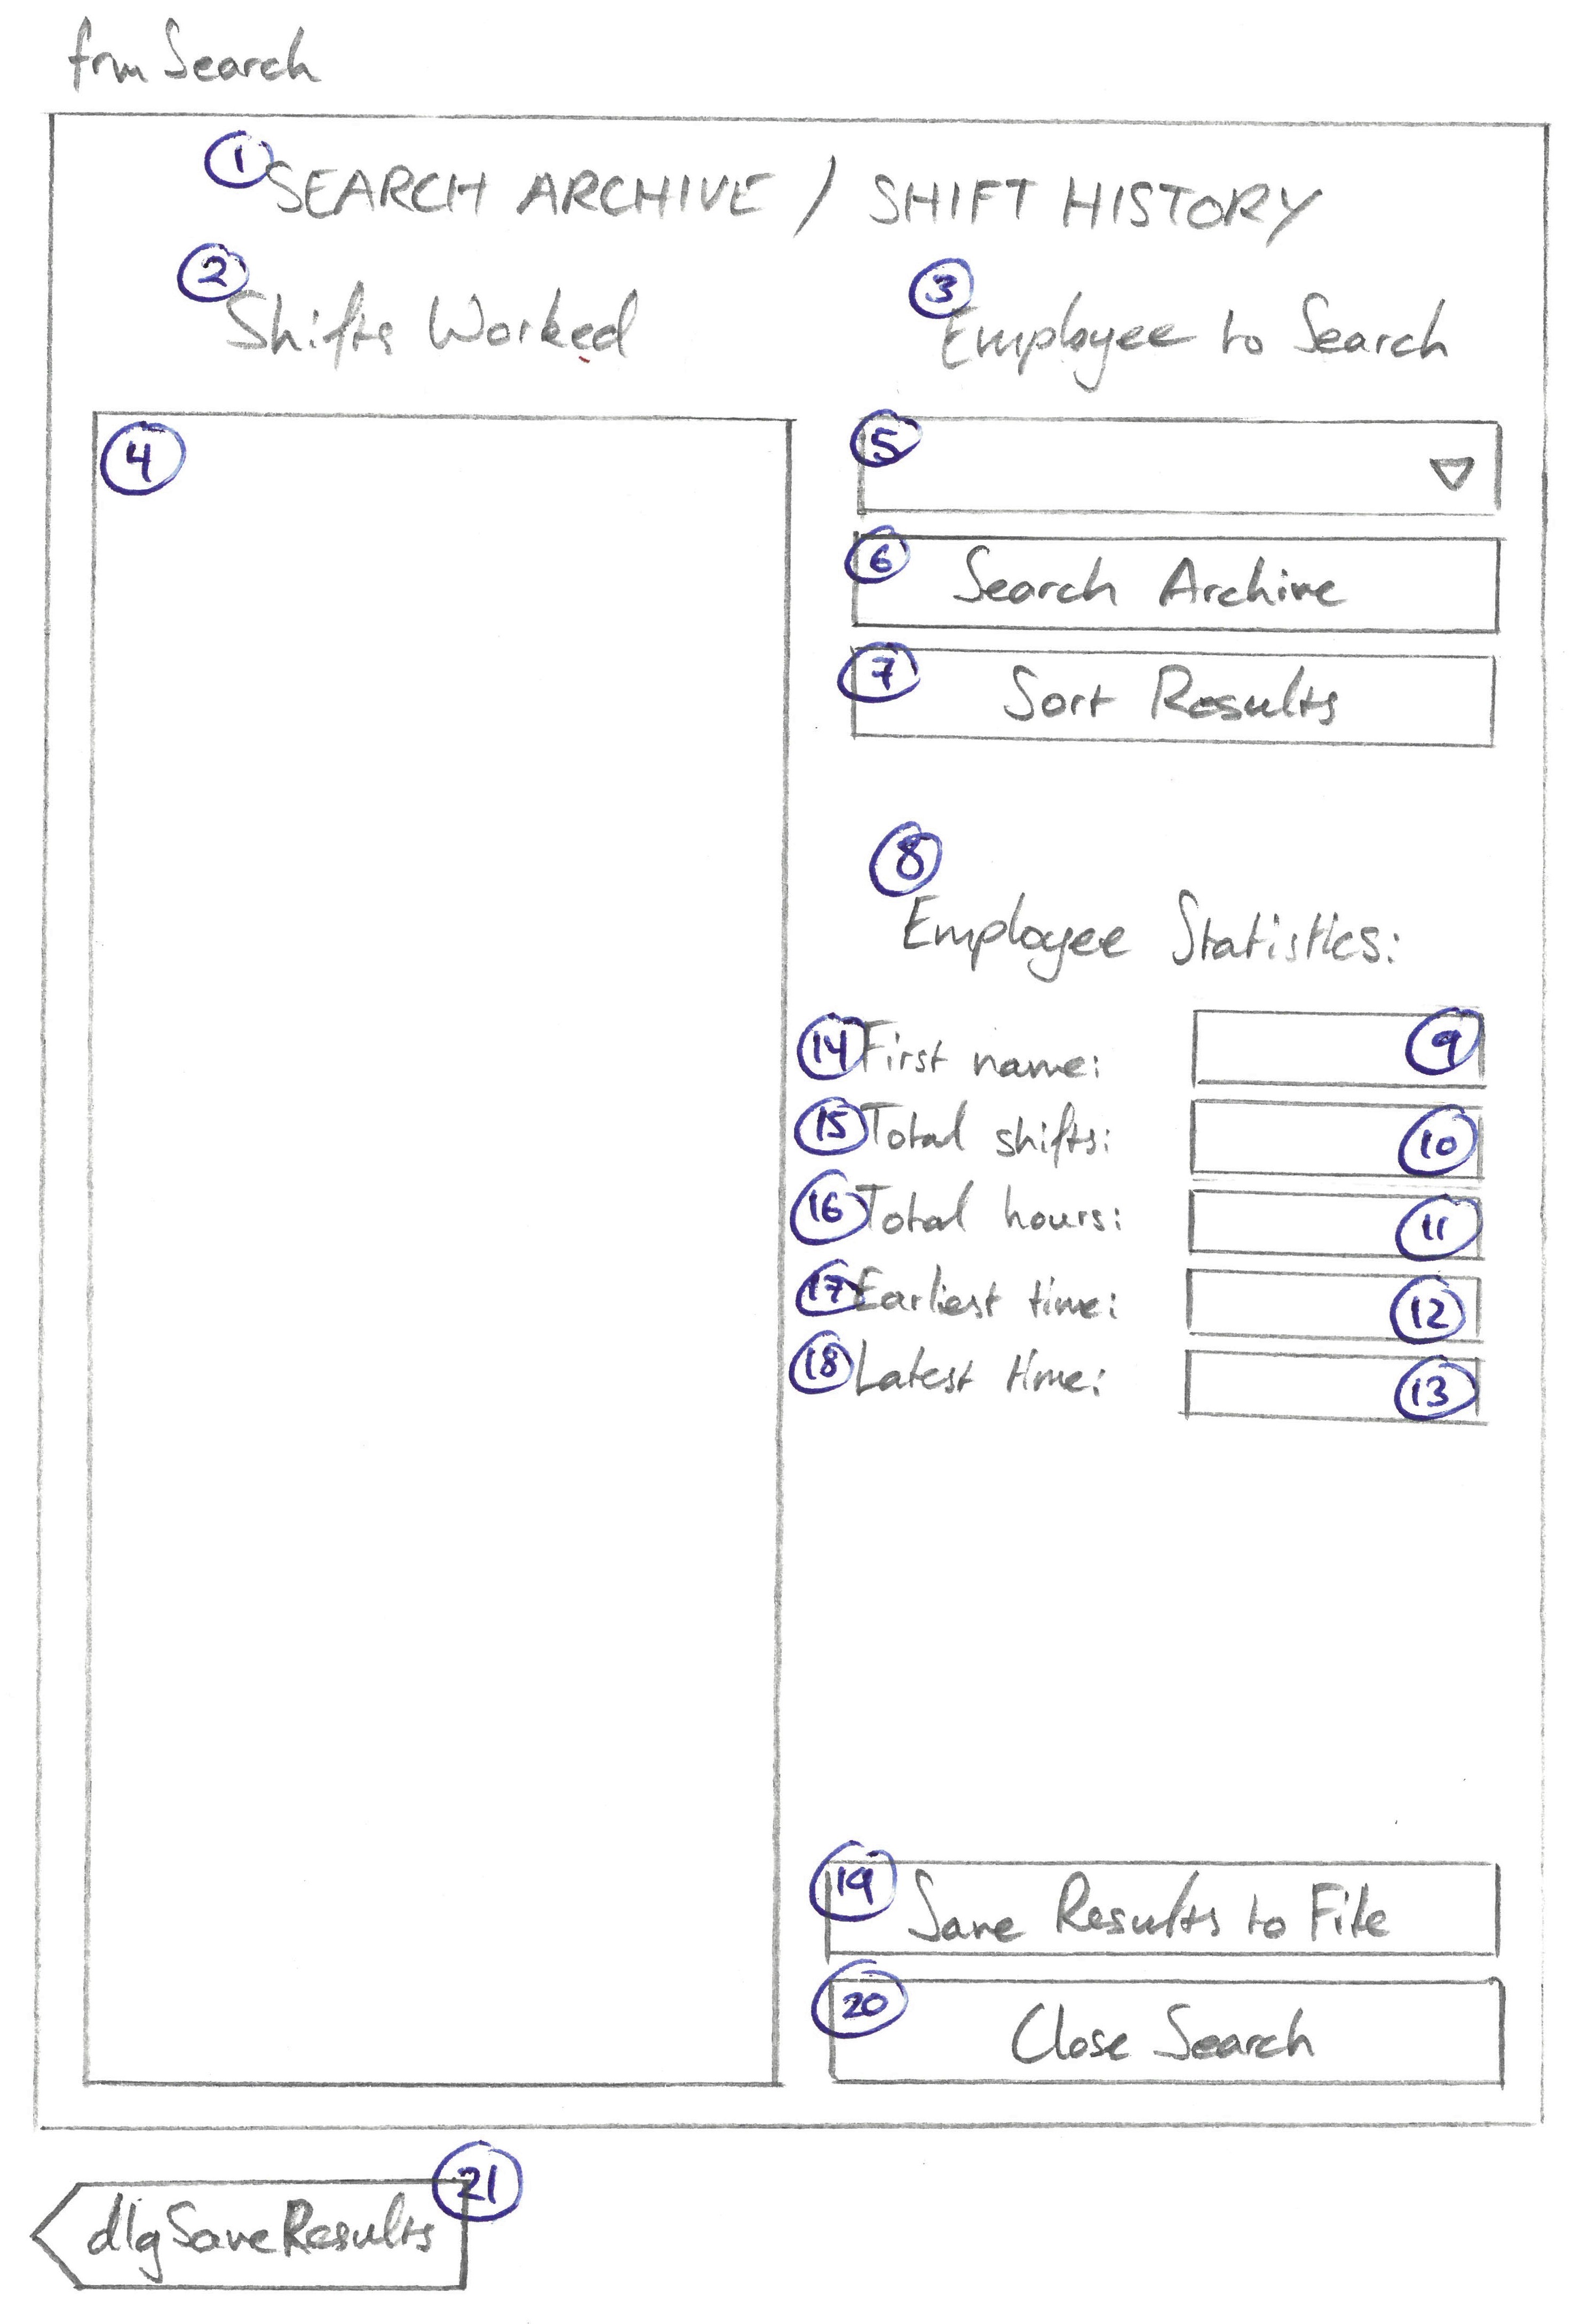 frm Search
1 SEARCH ARCHIVE / SHIFT HISTORY
2 Shifts Worked
3 Employee to Search
4
5
6 Search Archive
7 Sort Results
8 Employee Statistics:
14 First name: 9
15 Total shifts: 10
16 Total hours: 11
17 Earliest time: 12
18 Latest time: 13
19 Save Results to File
20 Close Search
21
dlgSaveResults